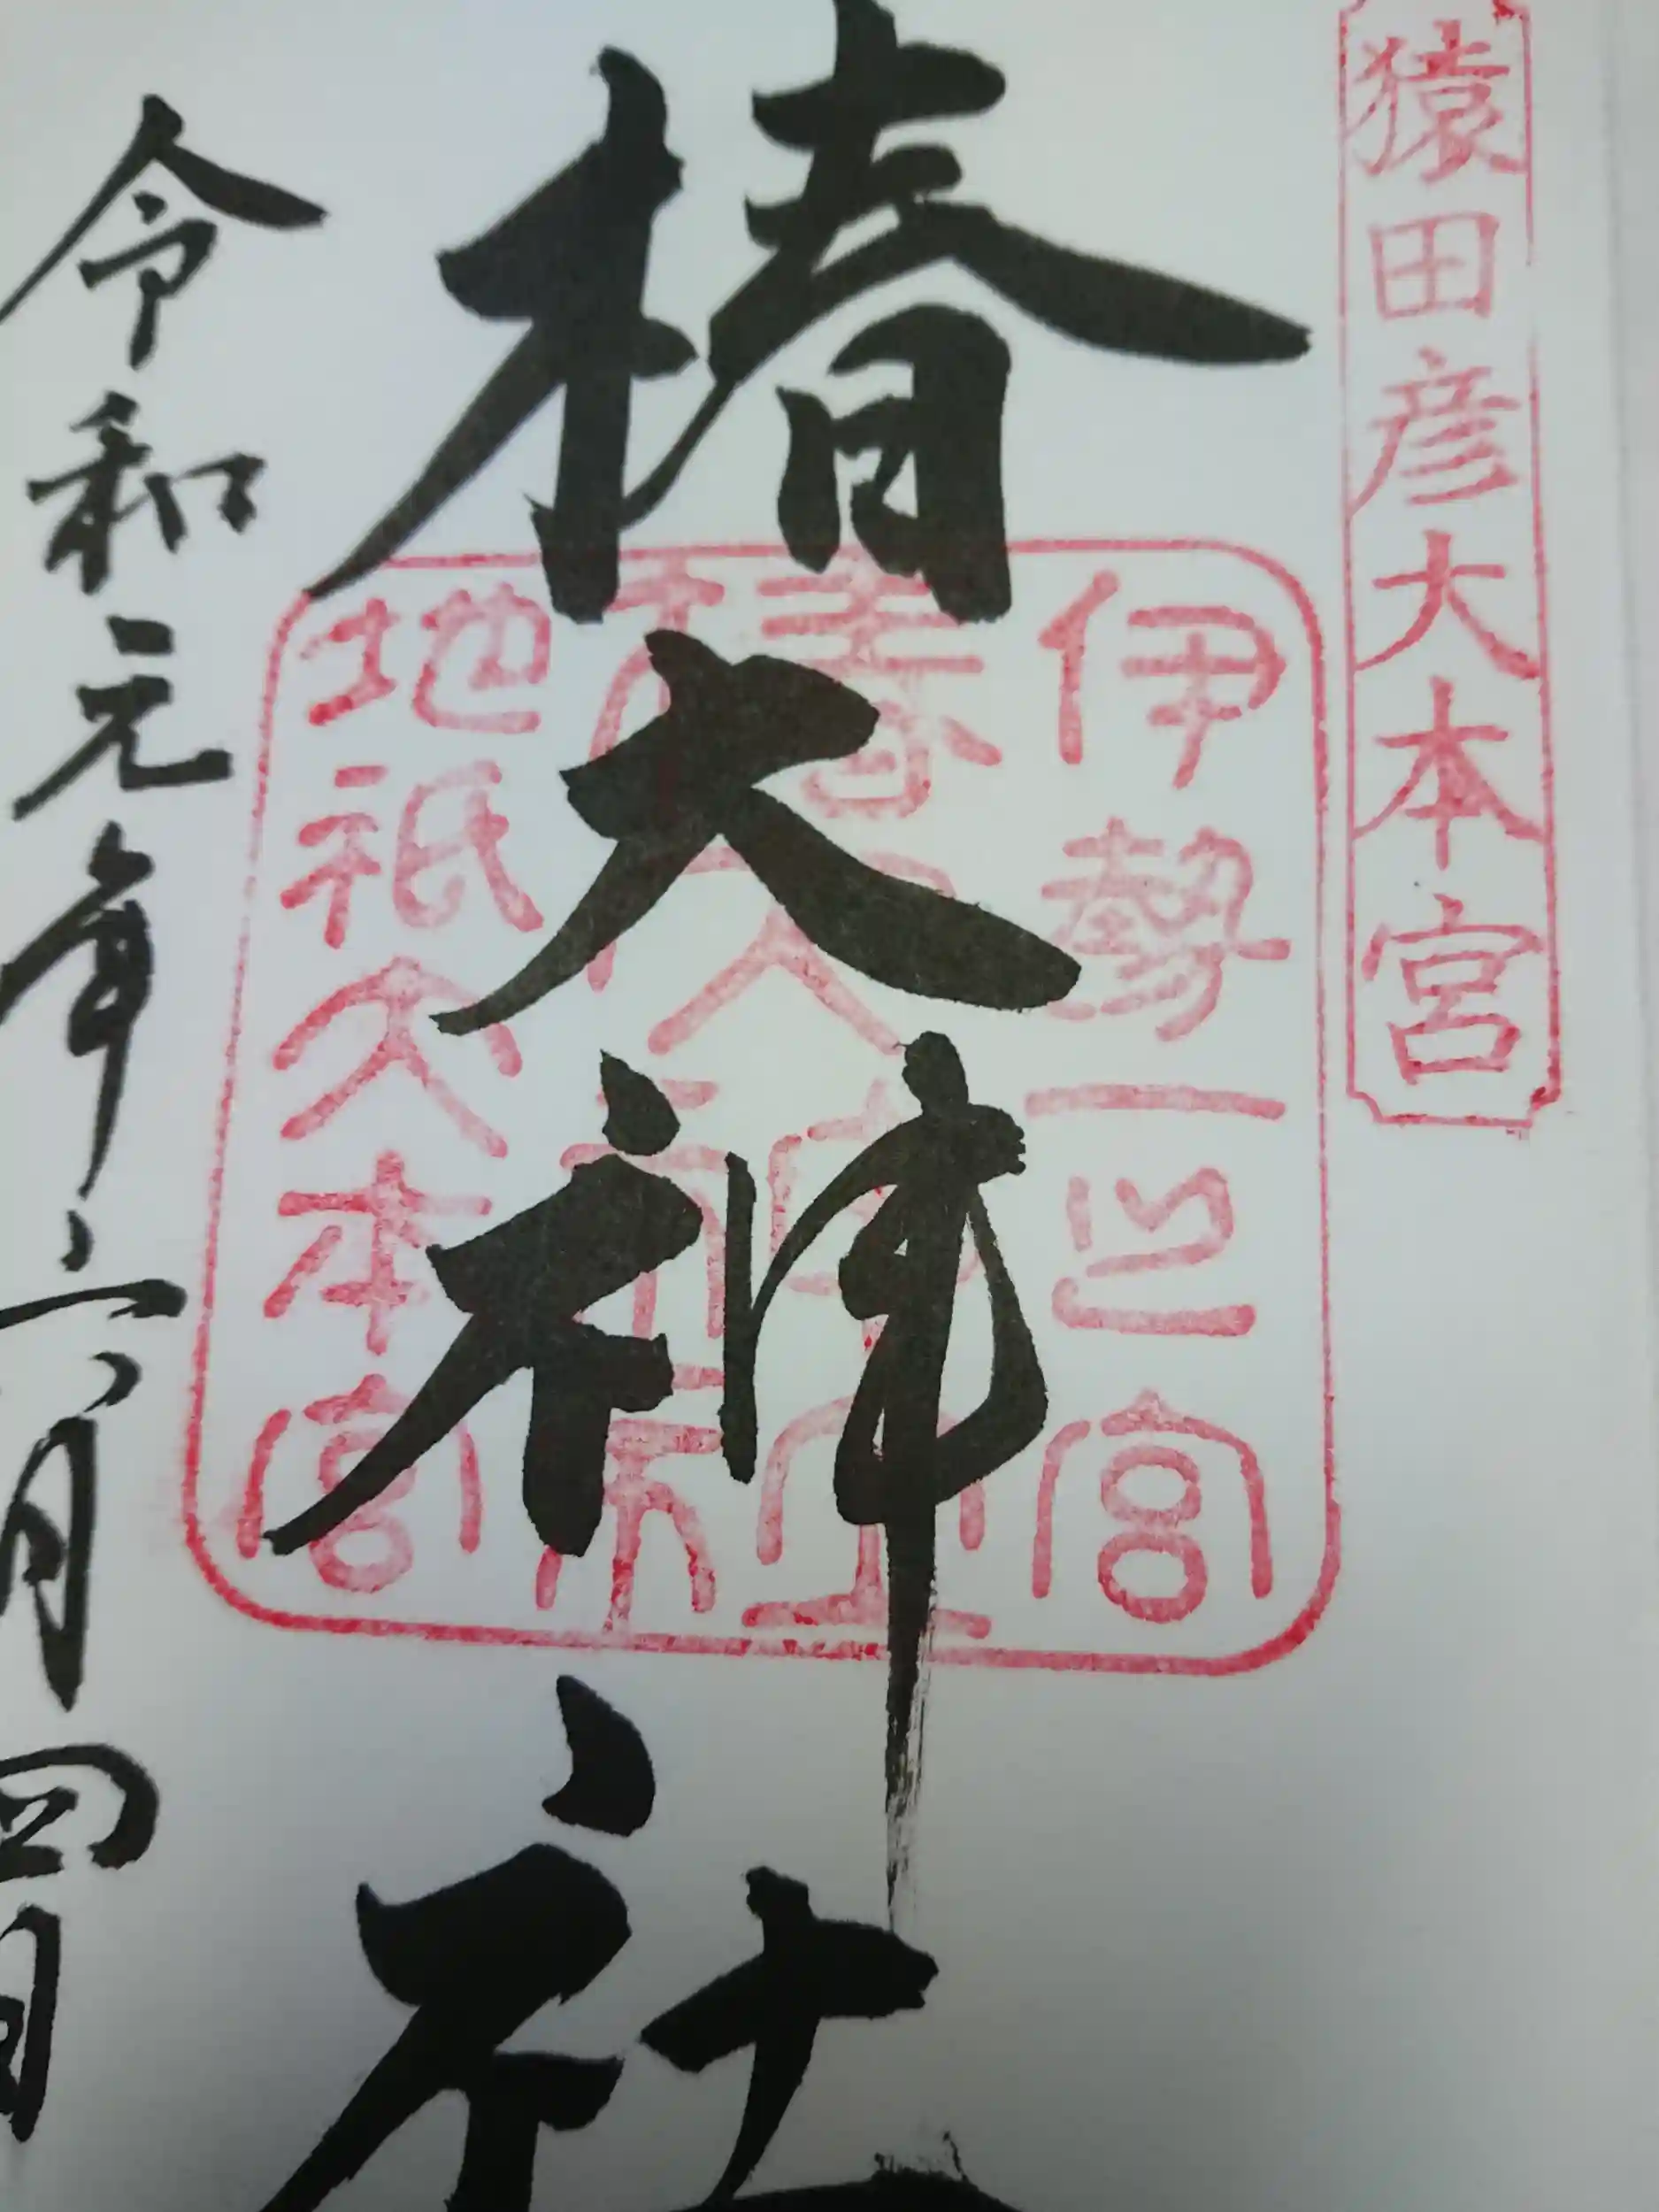 猿田彦大本宮
椿大神社
伊勢一之宮
椿大神社
地祇大本宮
令和元年六月四日